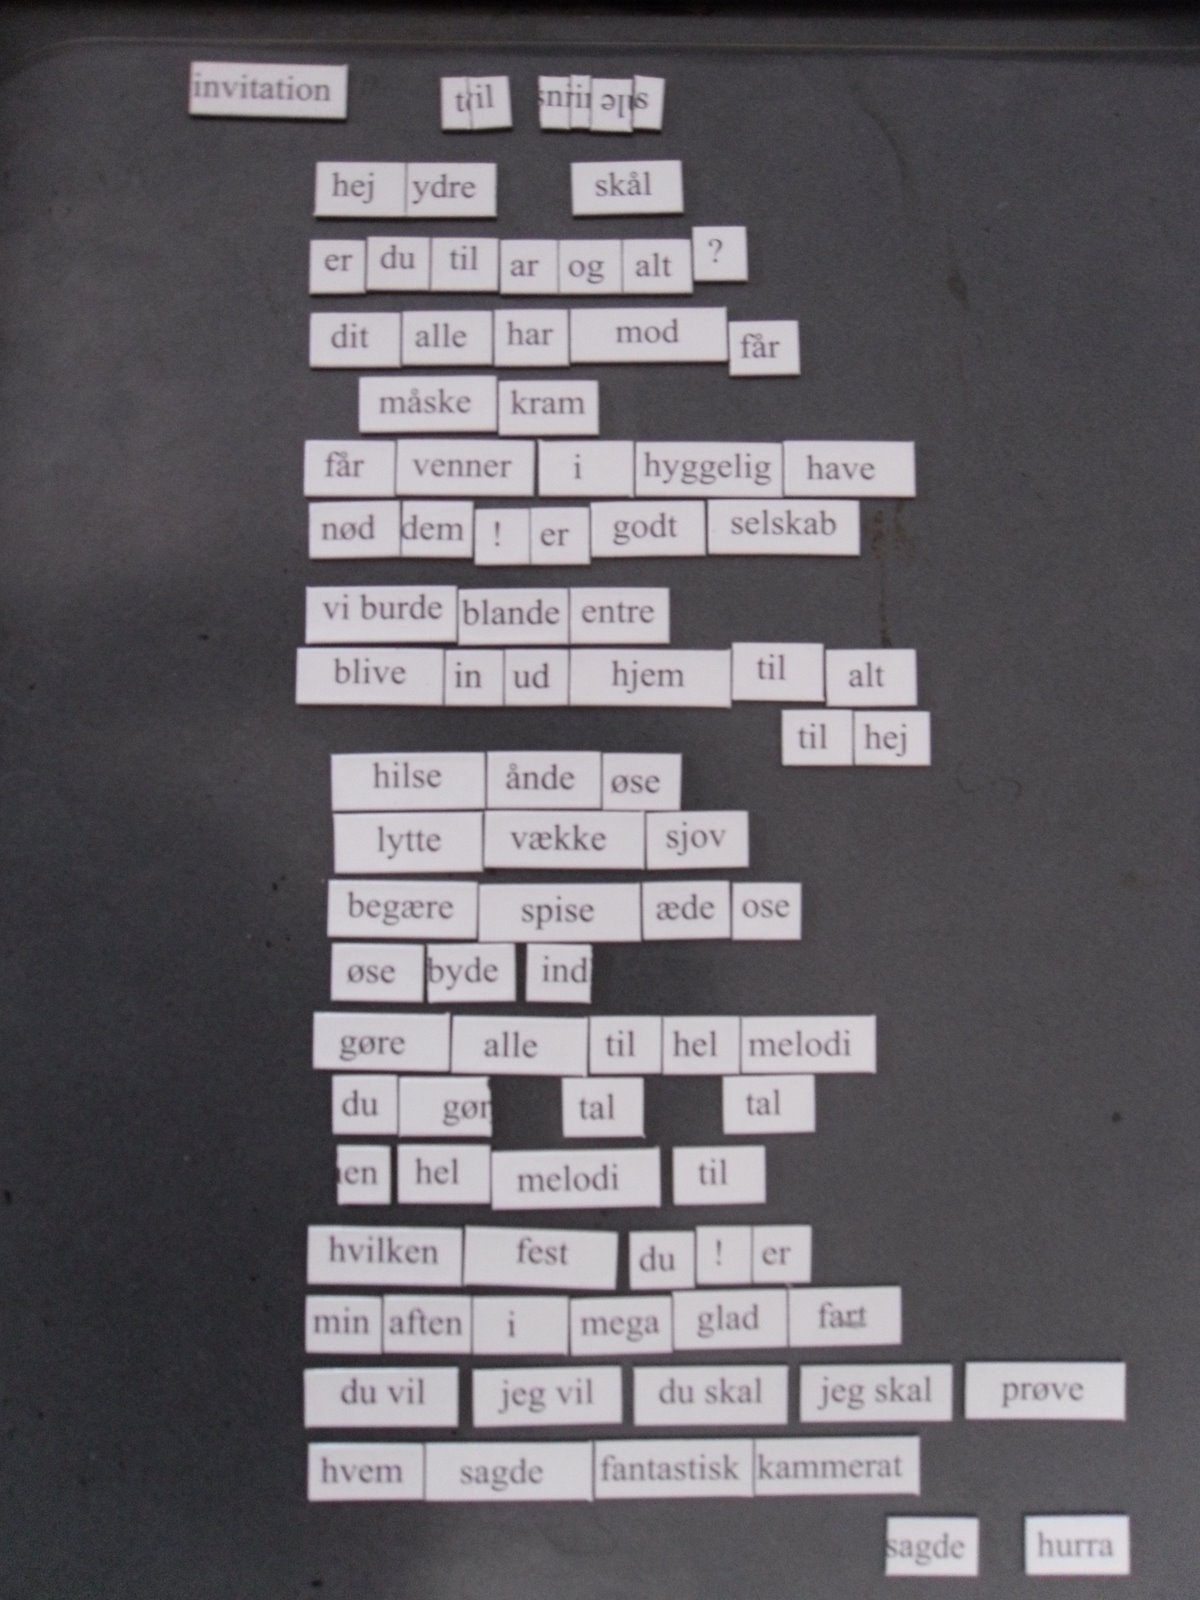 invitation til
hej ydre skål
er du til ar og alt ?
dit alle har mod får
måske kram
får venner i hyggelig have
nød dem ! er godt selskab
vi burde blande entre
blive in ud hjem til alt
til hej
hilse ånde øse
lytte vække sjov
begære spise æde ose
øse byde ind
gøre alle til hel melodi
du gør tal tal
en hel melodi til
hvilken fest du ! er
min aften i mega glad fart
du vil jeg vil du skal jeg skal prøve
hvem sagde fantastisk kammerat
sagde hurra